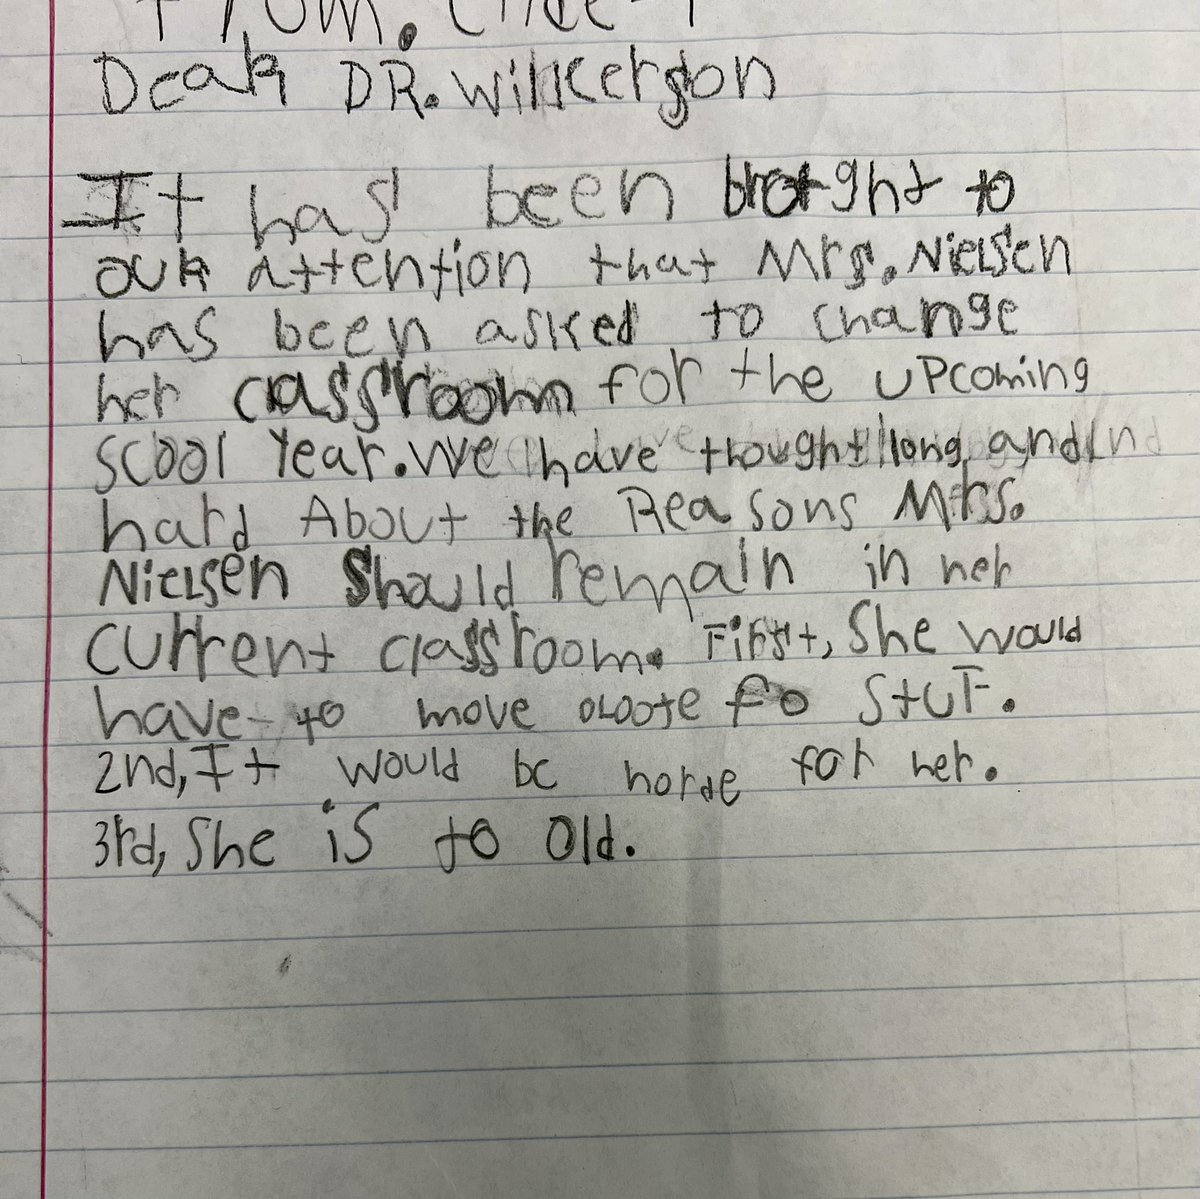 From.
Dear DR. Wilkerson
It has been brotght to
our attention that Mrs. Nielsen
has been asked to change
her classroom for the upcoming
scool Year. We have thought long and
hard About the Reasons Mrs.
Nielsen Should remain in her
current classroom. First, She would
have to move oloote fo Stuf.
2nd, It would be horde for her.
3rd, She is to Old.